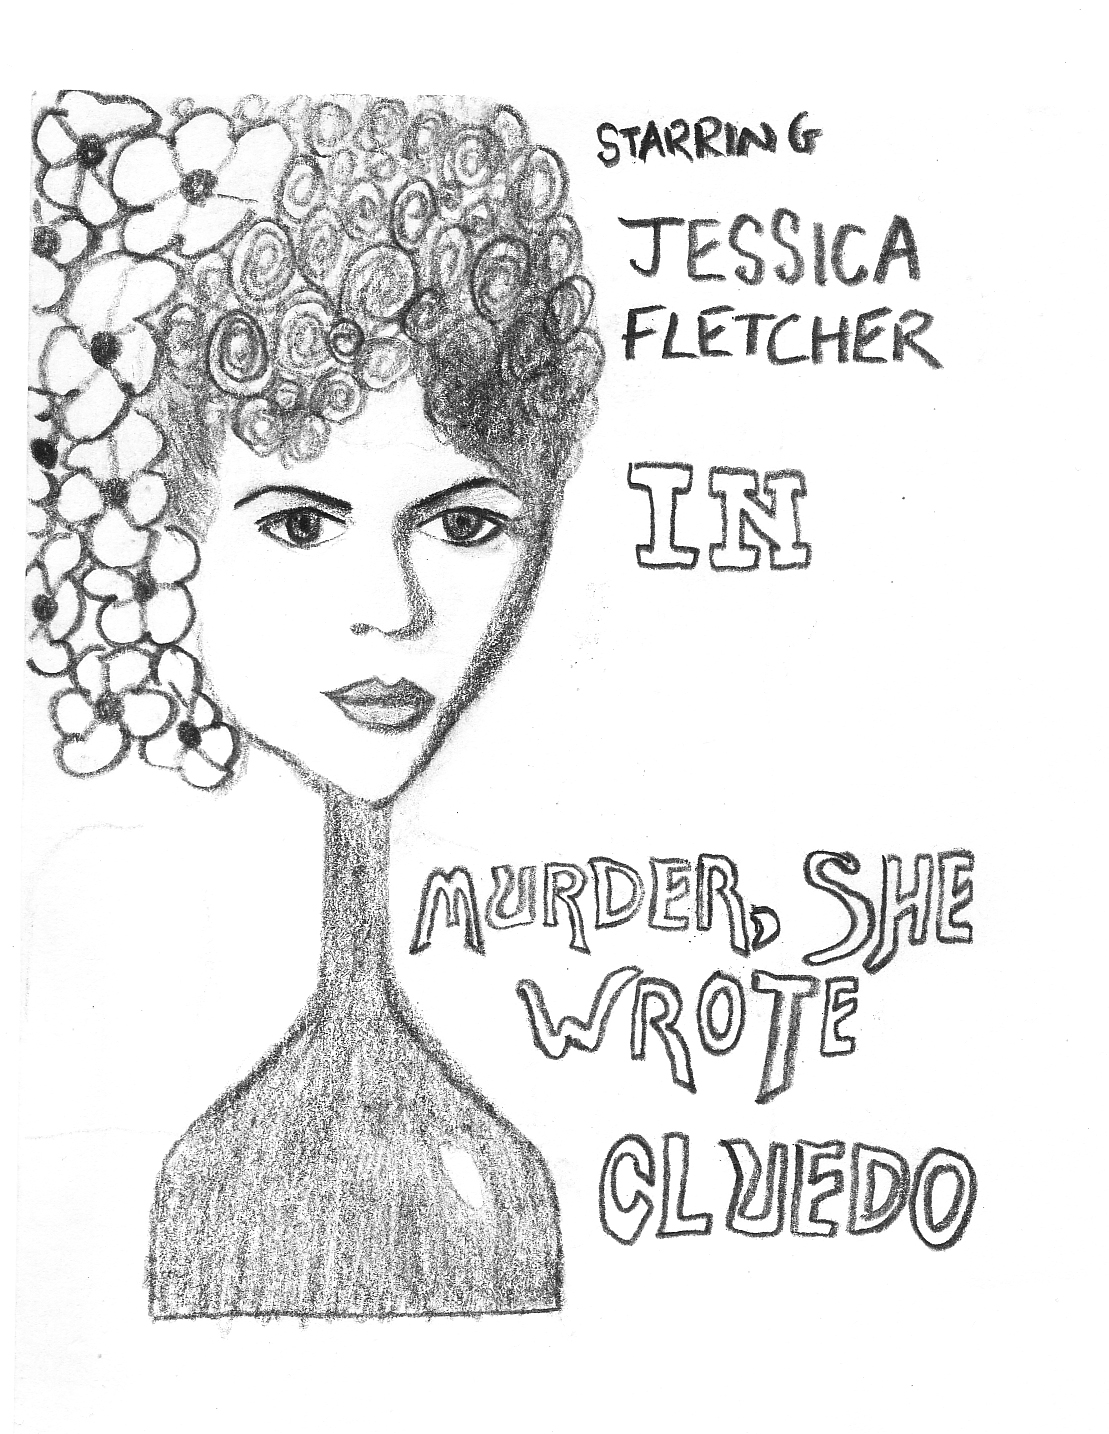 STARRING
JESSICA
FLETCHER
IN
MURDER, SHE
WROTE
CLUEDO